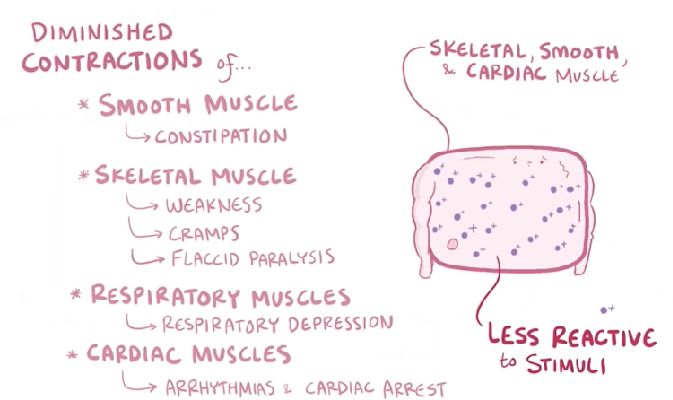 DIMINISHED
CONTRACTIONS of...
* SMOOTH MUSCLE
CONSTIPATION
* SKELETAL MUSCLE
WEAKNESS
CRAMPS
FLACCID PARALYSIS
* RESPIRATORY MUSCLES
RESPIRATORY DEPRESSION
* CARDIAC MUSCLES
ARRHYTHMIAS & CARDIAC ARREST
SKELETAL, SMOOTH,
& CARDIAC MUSCLE
LESS REACTIVE
to STIMULI